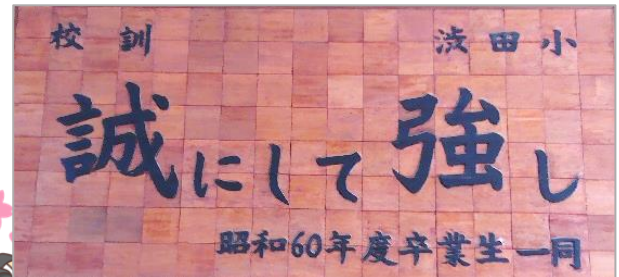 校訓 渋田小
誠にして強し
昭和60年度卒業生一同